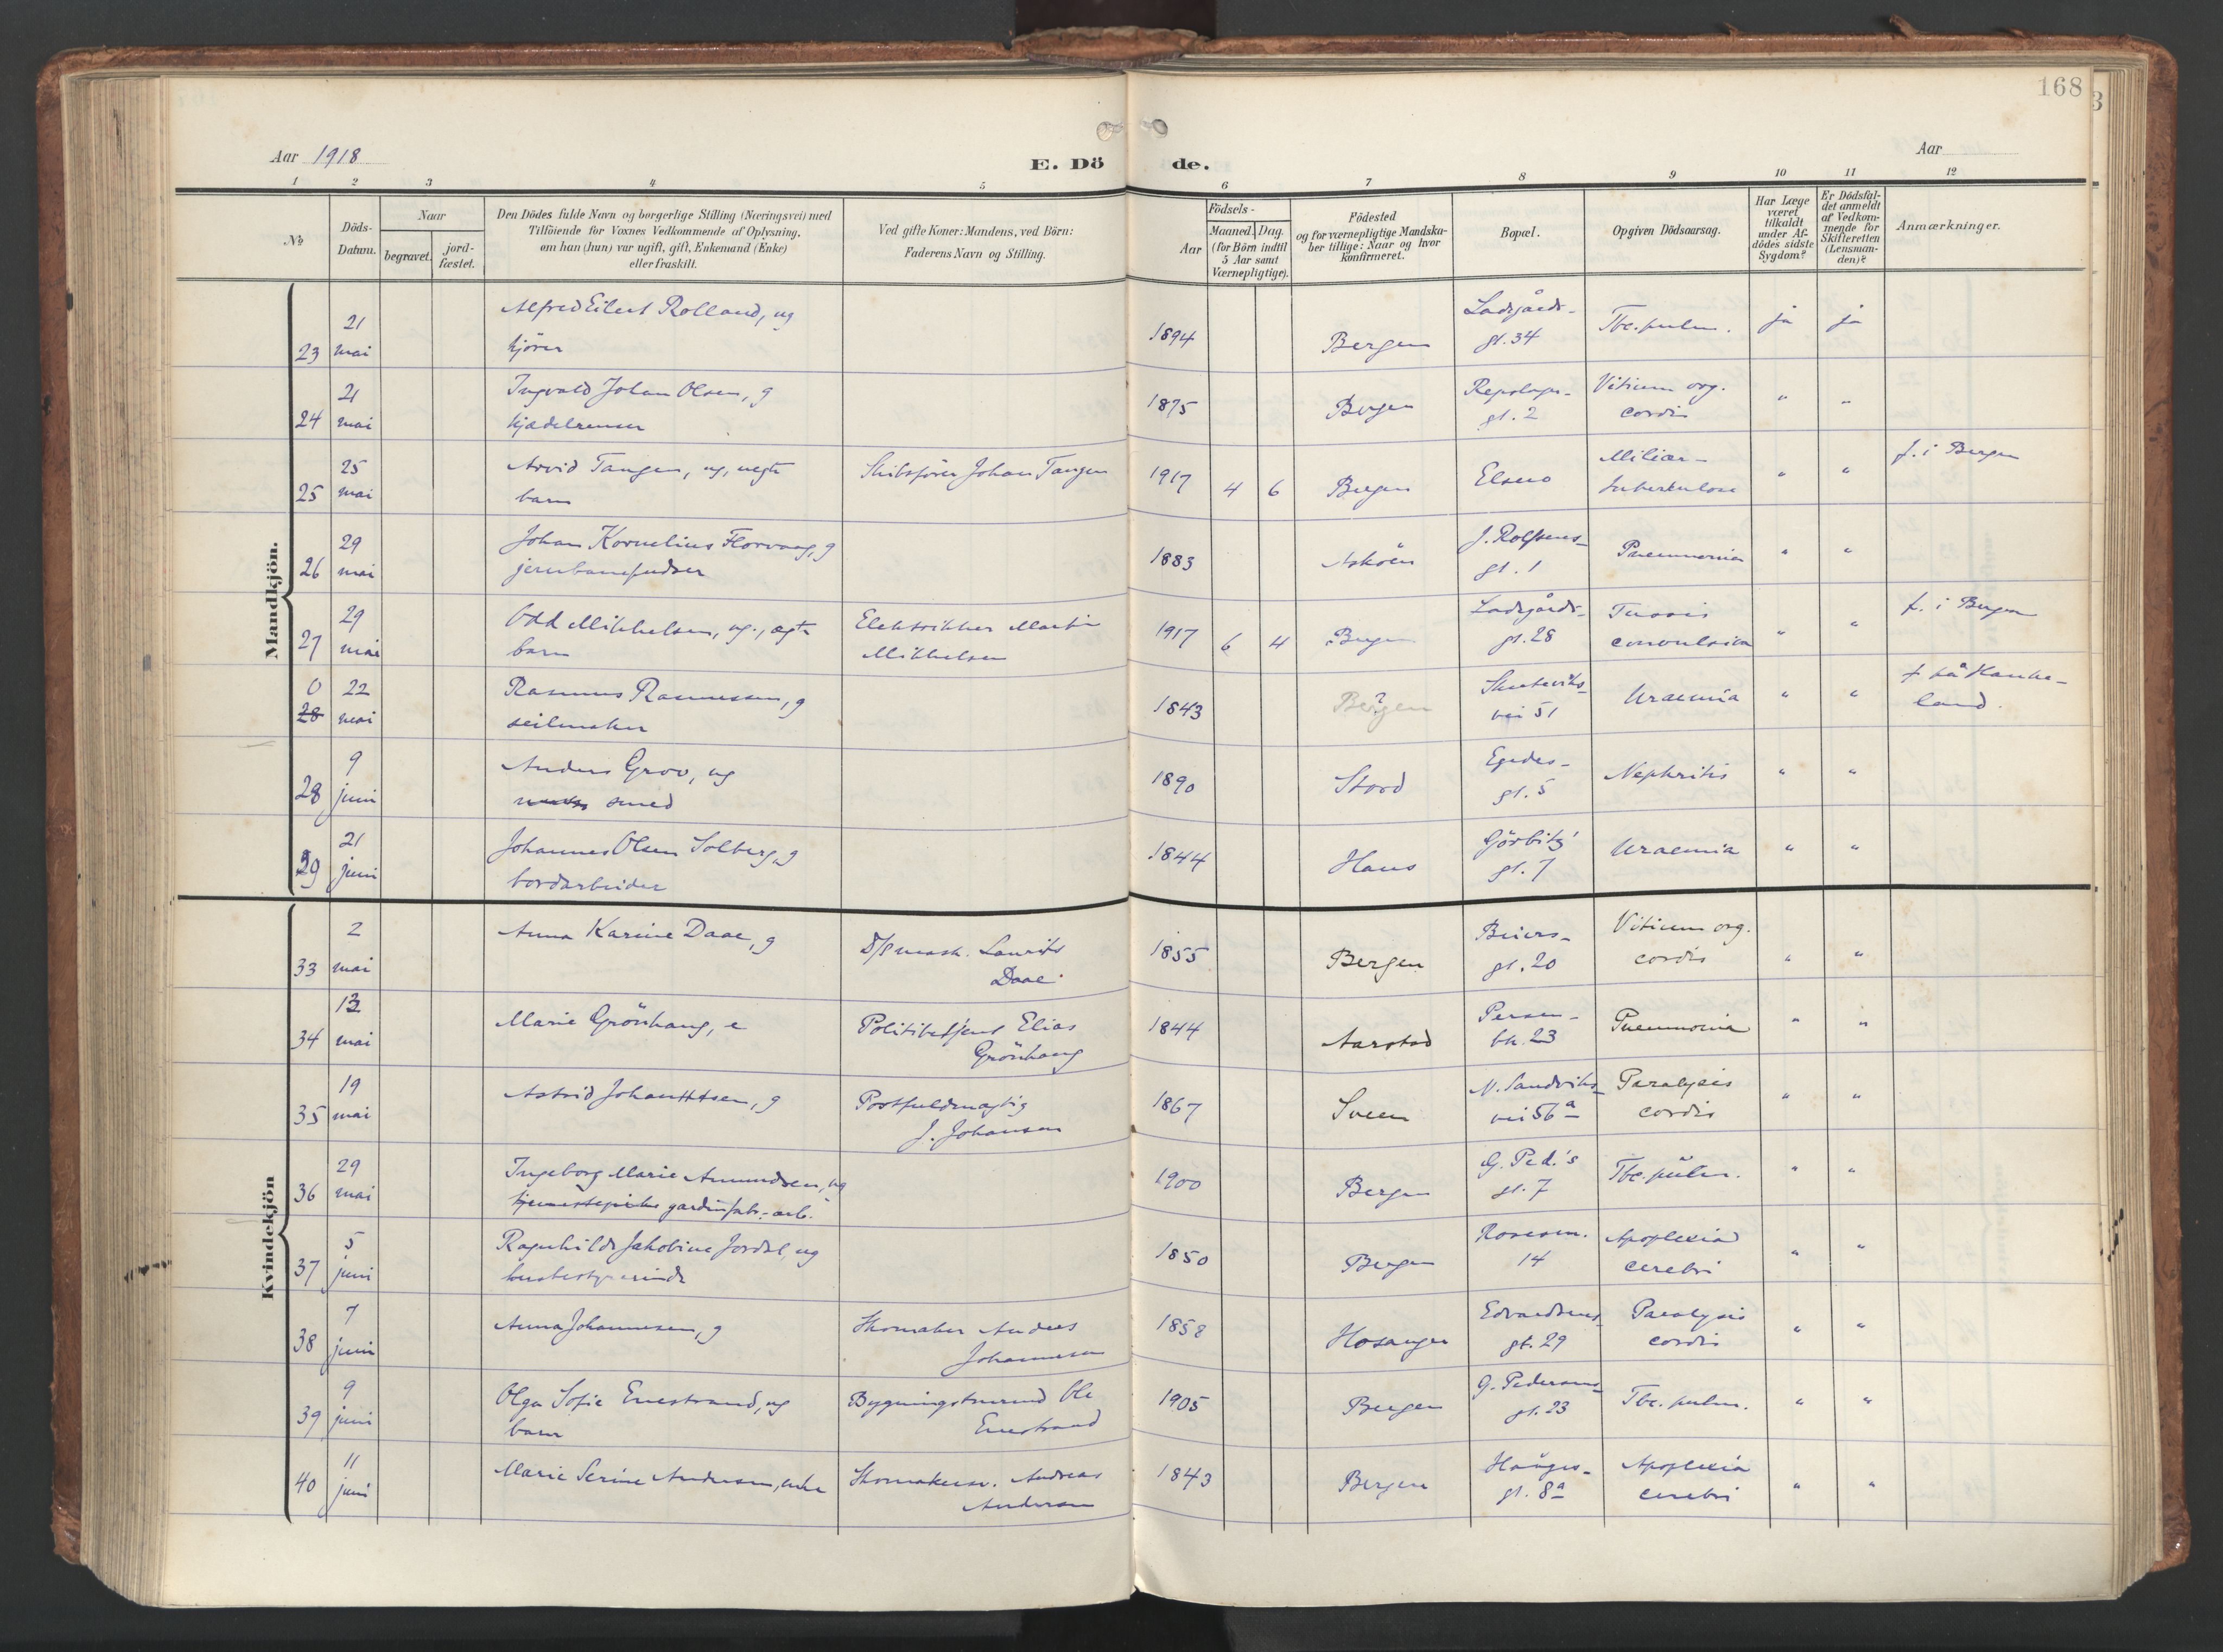 168
Aar 1918
E. Dö de.
Aar
1 2 3 4 5 6 7 8 9 10 11 12
No
Döds-
Datum.
Naar
begravet.
jord-
fæstet.
Den Dödes fulde Navn og borgerlige Stilling (Næringsvei) med
Tilföiende for Voxnes Vedkommende af Oplysning,
om han (hun) var ugift, gift, Enkemand (Enke)
eller fraskilt.
Ved gifte Koner: Mandens, ved Börn:
Faderens Navn og Stilling.
Födsels-
Aar
Maaned. Dag.
(for Börn indtil
5 Aar samt
Værnepligtige).
Födested
og for værnepligtige Mandska-
ber tillige: Naar og hvor
konfirmeret.
Bopæl.
Opgiven Dödsaarsag.
Har Læge
været
tilkaldt
under Af-
dödes sidste
Sygdom?
Er Dödsfal-
det anmeldt
af Vedkom-
mende for
Skifteretten
(Lensman-
den)?
Anmærkninger.
Mandkjön.
23 21 mai Alfred Eilert Rolland, ug 1894 Bergen Ladegårds- Tbc. pulm. ja ja
kjører gt. 34
24 21 mai Ingvald Johan Olsen, g 1875 Bergen Repslager- Vitium org. " "
kjædelrenser gt. 2 cordis
25 25 mai Arvid Tangen, ug, negte Skibsfører Johan Tangen 1917 4 6 Bergen Elsero Miliær- " " f. i Bergen
barn tuberkulose
26 29 mai Johan Kornelius Florvaag, g 1883 Askøen J. Rolfsens- Pneumonia " "
jernbanepudser gt. 1
27 29 mai Odd Mikkelsen, ug., ægte Elektrikker Martin 1917 6 4 Bergen Ladegårds- Tussis " " f. i Bergen
barn Mikkelsen gt. 28 convulsiva
0 28 22 mai Rasmus Rasmussen, g 1843 Bergen ? Skuteviks- Uraemia " " f på Hauke-
seilmaker vei 51 land.
28 9 juni Anders Grov, ug 1890 Stord Egedes- Nephritis " "
smed gt. 5
29 21 juni Johannes Olsen Solberg, g 1844 Haus Görbitz' Uraemia " "
bordarbeider gt. 7
Kvindekjön
33 2 mai Anna Karine Daae, g D/S mask. Laurits 1855 Bergen Beiers- Vitium org. " "
Daae gt. 20 cordis
34 13 mai Marie Grönhaug, e Politibetjent Elias 1844 Aarstad Persen- Pneumonia " "
Grönhaug bk. 23
35 19 mai Astrid Johansen, g Postfuldmægtig 1867 Sveen N. Sandviks- Paralysis " "
J. Johansen vei 56 a cordis
36 29 mai Ingeborg Marie Amundsen, ug 1900 Bergen G. Ped.'s Tbc. pulm. " "
gardinfabr.-arb. gt. 7
37 5 juni Ragnhilde Jakobine Jordal, ug 1850 Bergen Rosesm. Apoplexia " "
husbestyrerinde 14 cerebri
38 7 juni Anna Johannesen, g Skomaker Anders 1858 Hosanger Edvardsens- Paralysis " "
Johannesen gt. 29 cordis
39 9 juni Olga Sofie Enestrand, ug Bygningstmrmd Ole 1905 Bergen G. Pedersens- Tbc. pulm. " "
barn Enestrand gt. 23
40 11 juni Marie Serine Andersen, enke Skomakersv. Andreas 1843 Bergen Hauges- Apoplexia " "
Andersen gt. 8 a cerebri